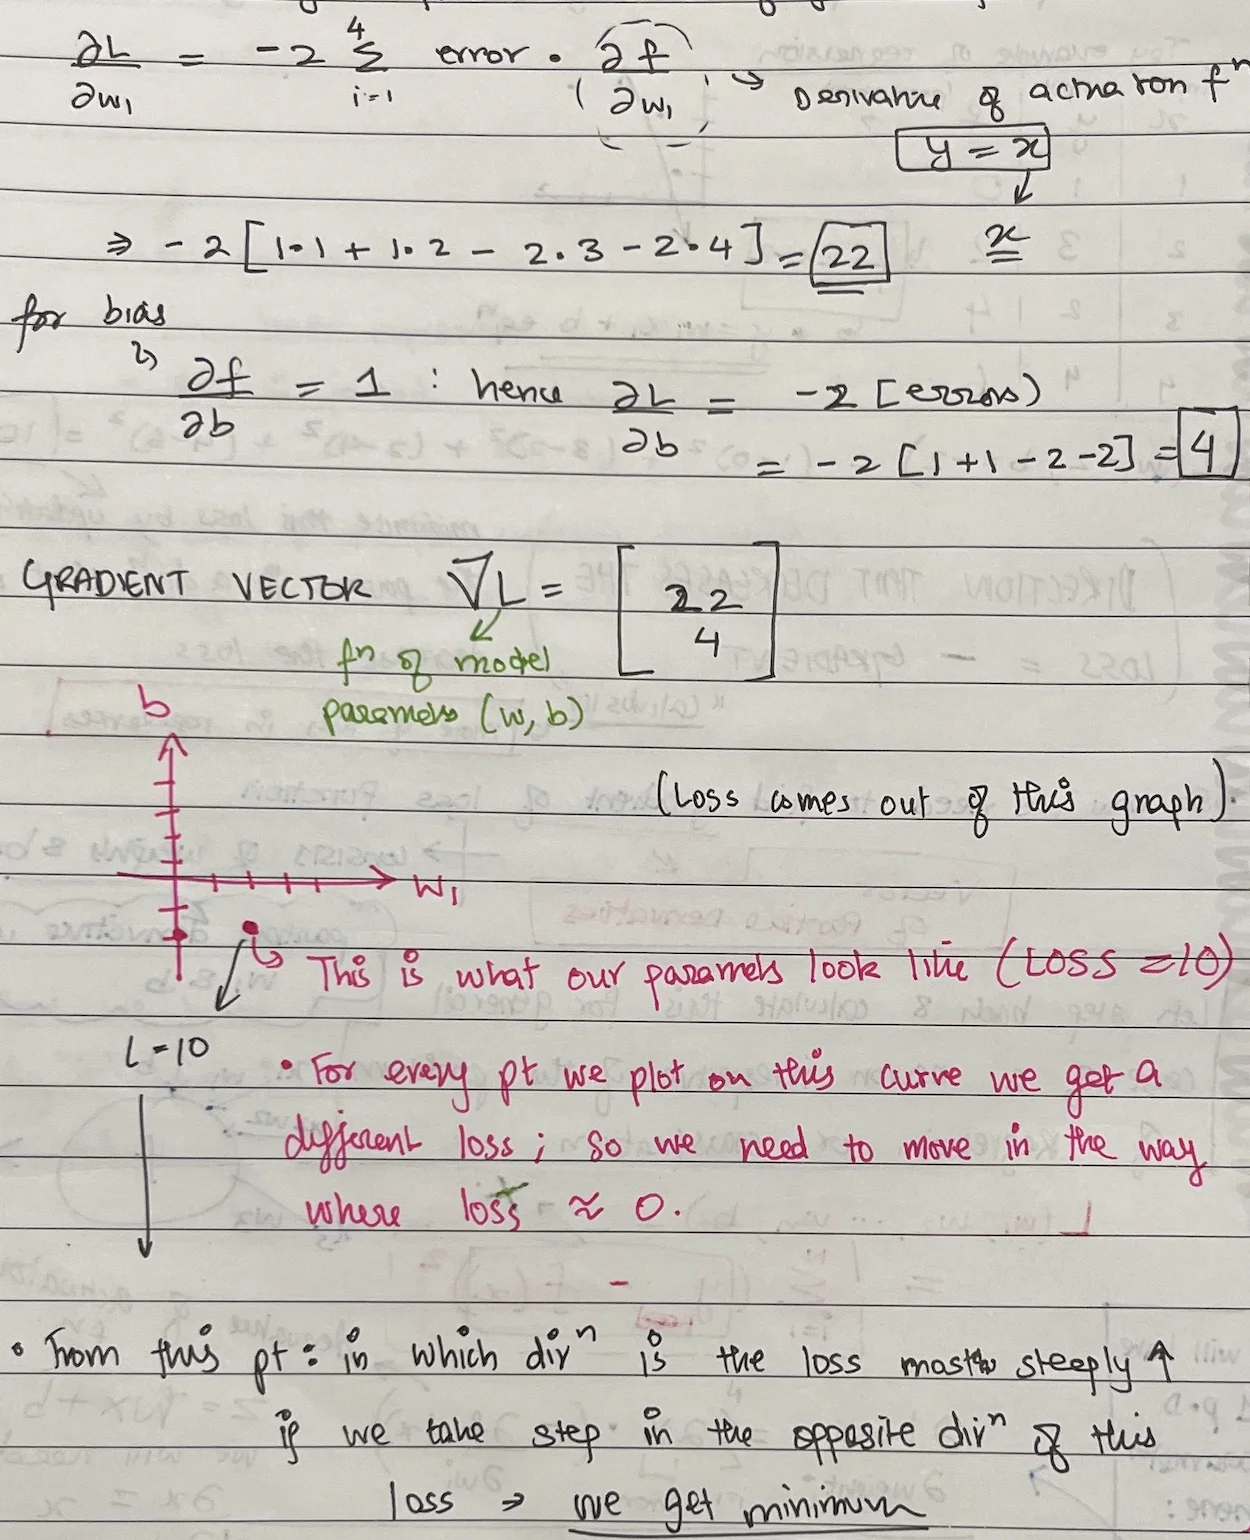 ∂L/∂w₁ = -2 4Σi=1 error · (∂f/∂w₁) → Derivative of activation fⁿ
y = x
⇒ -2 [1·1 + 1·2 - 2·3 - 2·4] = 22
x
for bias
∂f/∂b = 1 : hence ∂L/∂b = -2 [errors)
= -2 [1+1-2-2] = 4
GRADIENT VECTOR ∇L = [22 4]
fⁿ of model
params (w, b)
b
(Loss comes out of this graph).
w₁
This is what our params look like (LOSS = 10)
L = 10
• For every pt we plot on this curve we get a
different loss ; so we need to move in the way
where loss ≈ 0.
-
• From this pt : in which dirⁿ is the loss most steeply ↑
if we take step in the opposite dirⁿ of this
loss → we get minimum